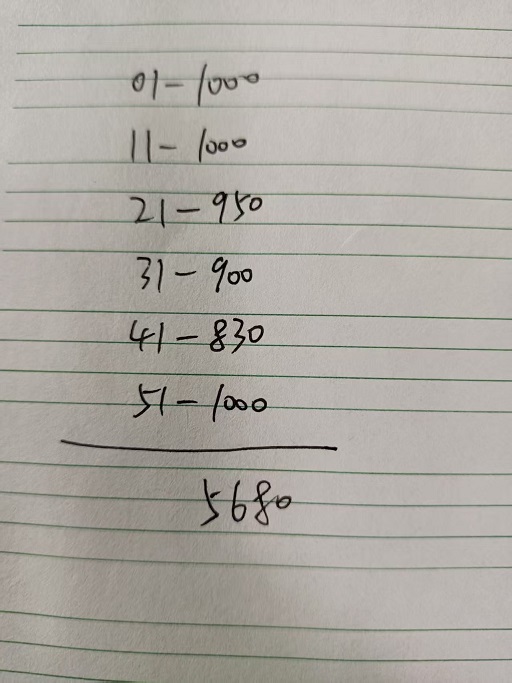 01-1000
11-1000
21-950
31-900
41-830
51-1000
5680